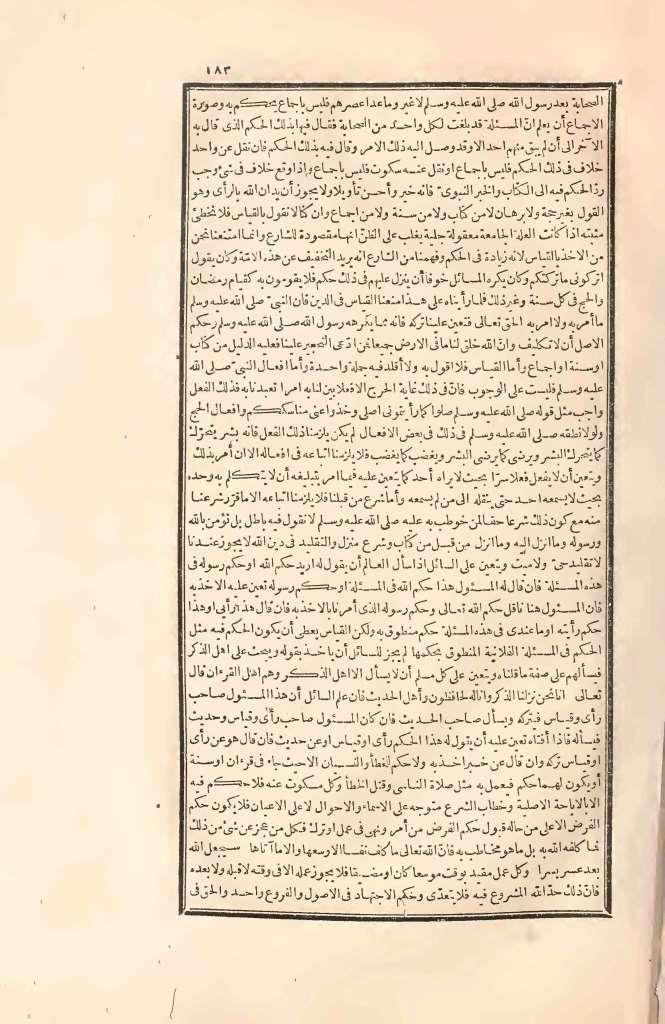 ١٨٣
الصحابة بعد رسول الله صلى الله عليه وسلم لا غير وما عدا عصرهم فليس باجماع يحكم به وصورة
الاجماع أن يعلم انّ المسئلة قد بلغت لكل واحد من الصحابة فقال فيها بذلك الحكم الذى قال به
الآخر الى أن لم يبق منهم احد الا وقد وصل اليه ذلك الامر وقال فيه بذلك الحكم فان نقل عن واحد
خلاف فى ذلك الحكم فليس باجماع او نقل عنه سكوت فليس باجماع واذا وقع خلاف فى شئ وجب
ردّ الحكم فيه الى الكتاب والخبر النبوىّ فانه خير وأحسن تأويلا ولا يجوز أن يدان الله بالرأى وهو
القول بغير حجة ولا برهان لا من كتاب ولا من سنة ولا من اجماع وان كنا لا نقول بالقياس فلا نخطئ
مثبته اذا كانت العلة الجامعة معقولة جلية يغلب على الظنّ انها مقصودة للشارع وانما امتنعنا نحن
من الاخذ بالقياس لانه زيادة فى الحكم وفهمنا من الشارع انه يريد التخفيف عن هذه الامّة وكان يقول
اتركونى ما تركتكم وكان يكره المسائل خوفا أن ينزل عليهم فى ذلك حكم فلا يقومون به كقيام رمضان
والحج فى كل سنة وغير ذلك فلما رأيناه على هذا منعنا القياس فى الدين فان النبىّ صلى الله عليه وسلم
ما أمر به ولا امر به الحق تعالى فتعين علينا تركه فانه مما يكرهه رسول الله صلى الله عليه وسلم وحكم
الاصل أن لا تكليف وانّ الله خلق لنا ما فى الارض جميعا فمن ادّعى التحجير علينا فعليه الدليل من كتاب
او سنة او اجماع وأما القياس فلا اقول به ولا أقلد فيه جملة واحدة وأما افعال النبىّ صلى الله
عليه وسلم فليست على الوجوب فانّ فى ذلك غاية الحرج الا فعلا بين لنا به امرا تعبدنا به فذلك الفعل
واجب مثل قوله صلى الله عليه وسلم صلوا كما رأيتمونى اصلى وخذوا عنى مناسككم وافعال الحج
ولولا نطقه صلى الله عليه وسلم فى ذلك فى بعض الافعال لم يكن يلزمنا ذلك الفعل فانه بشر يتحرّك
كما يتحرك البشر ويرضى كما يرضى البشر ويغضب كما يغضب فلا يلزمنا اتباعه فى افعاله الا ان أمر بذلك
ويتعين أن لا يفعل فعلا سرّا بحيث لا يراه أحد كما يتعين عليه فيما امر بتبليغه أن لا يتكلم به وحده
بحيث لا يسمعه احد حتى ينقله الى من لم يسمعه وأما شرع من قبلنا فلا يلزمنا اتباعه الا ما قرّر شرعنا
منه مع كون ذلك شرعا حقا لمن خوطب به عليه صلى الله عليه وسلم لا نقول فيه باطل بل نؤمن بالله
ورسوله وما انزل اليه وما انزل من قبل من كتاب وشرع منزل والتقليد فى دين الله لا يجوز عندنا
لا تقليد حىّ ولا ميت ويتعين على السائل اذا سأل العالم أن يقول له اريد حكم الله او حكم رسوله فى
هذه المسئلة فان قال له المسئول هذا حكم الله فى المسئلة او حكم رسوله تعين عليه الاخذ به
فان المسئول هنا ناقل حكم الله تعالى وحكم رسوله الذى أمرنا بالاخذ به فان قال هذا رأيى او هذا
حكم رأيته او ما عندى فى هذه المسئلة حكم منطوق به ولكن القياس يعطى أن يكون الحكم فيه مثل
الحكم فى المسئلة الفلانية المنطوق بحكمها لم يجز للسائل أن يأخذ بقوله ويبحث على اهل الذكر
فيسألهم على صفة ما قلناه ويتعين على كل مسلم أن لا يسأل الا اهل الذكر وهم اهل القرءان قال
تعالى انا نحن نزلنا الذكر وانا له لحافظون وأهل الحديث فان علم السائل أن هذا المسئول صاحب
رأى وقياس فيتركه ويسأل صاحب الحديث فان كان المسئول صاحب رأى وقياس وحديث
فيسأله فاذا أفتاه تعين عليه أن يقول له هذا الحكم رأى او قياس او عن حديث فان قال هو عن رأى
او قياس تركه وان قال عن خبر اخذ به ولا حكم للخطأ والنسيان الا حيث جاء فى قرءان او سنة
أو يكون لهما حكم فيعمل به مثل صلاة الناسى وقتل الخطأ وكل مسكوت عنه فلا حكم فيه
الا بالاباحة الاصلية وخطاب الشرع متوجه على الاسماء والاحوال لا على الاعيان فلا يكون حكم
الفرض الا على من حاله قبول حكم الفرض من أمر ونهى فى عمل او ترك فكل من يعجز عن شئ من ذلك
فما كلفه الله به بل ما هو مخاطب به فانّ الله تعالى ما كلف نفسا الا وسعها والا ما آتاها سيجعل الله
بعد عسر يسرا وكل عمل مقيد بوقت موسعا كان او مضيقا فلا يجوز عمله الا فى وقته لا قبله ولا بعده
فانّ ذلك حدّ الله المشروع فيه فلا يتعدّى وحكم الاجتهاد فى الاصول والفروع واحد والحق فى